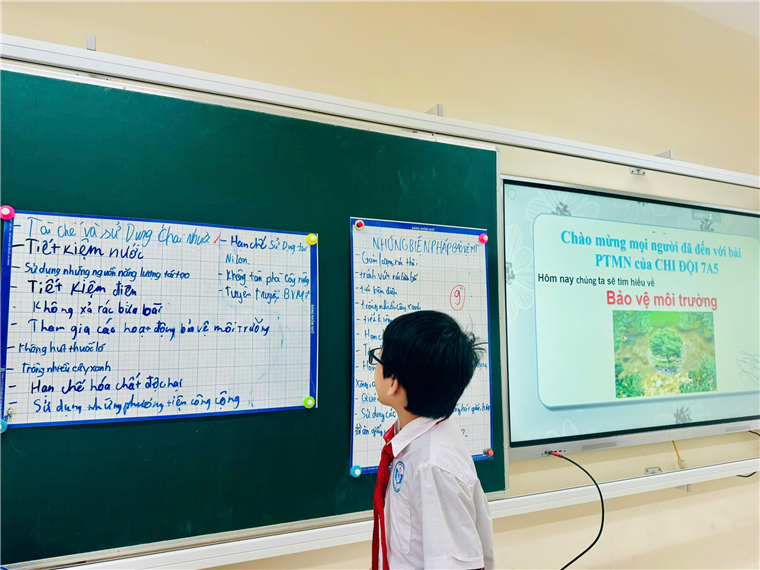 - Tái chế và sử Dụng chai nhựa
- Tiết kiệm nước
- Sử dụng những nguồn năng lượng tái tạo
- Tiết kiệm điện
- Không xả rác bừa bãi
- Tham gia các hoạt động bảo vệ môi trường
- Không hút thuốc lá
- Trồng nhiều cây xanh
- Hạn chế hóa chất độc hại
- Sử dụng những phương tiện công cộng
- Hạn chế sử Dụng túi
Nilon.
- Không tàn phá
- Tuyên truyền BVMT
NHỮNG BIỆN PHÁP BẢO VỆ MT
- Giảm lượng rác thải
- tránh vứt rác bừa bãi
- tiết kiệm điện
- trồng nhiều cây xanh
9
- tiết kiệm
Sử dụng các
Chào mừng mọi người đã đến với bài
PTMN của CHI ĐỘI 7A5
Hôm nay chúng ta sẽ tìm hiểu về
Bảo vệ môi trường